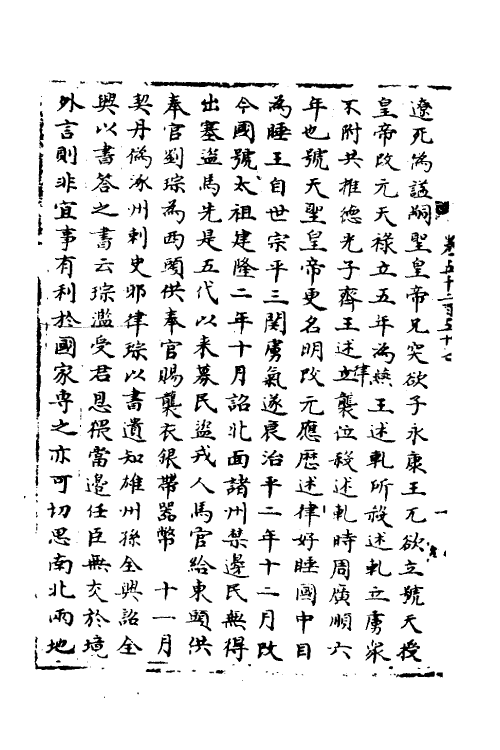 卷五千二百五十七
遼死偽諡嗣聖皇帝兄突欲子永康王兀欲立號天授
皇帝改元天祿立五年為燕王述軋所殺述軋立虜衆
不附共推德光子齊王述律襲位殺述軋時周廣順六
年也號天聖皇帝更名明改元應歷述律好睡國中目
為睡王自世宗平三関虜氣遂衰治平二年十二月改
今國號太祖建隆二年十月詔北面諸州禁邊民無得
出塞盜馬先是五代以来募民盜戎人馬官給東頭供
奉官劉琮為西頭供奉官賜襲衣銀帶器幣 十一月
契丹偽涿州刺史耶律琮以書遺知雄州孫全興詔全
興以書答之書云琮濫受君恩猥當邊任臣無交於境
外言則非宜事有利於國家専之亦可切思南北兩地
一